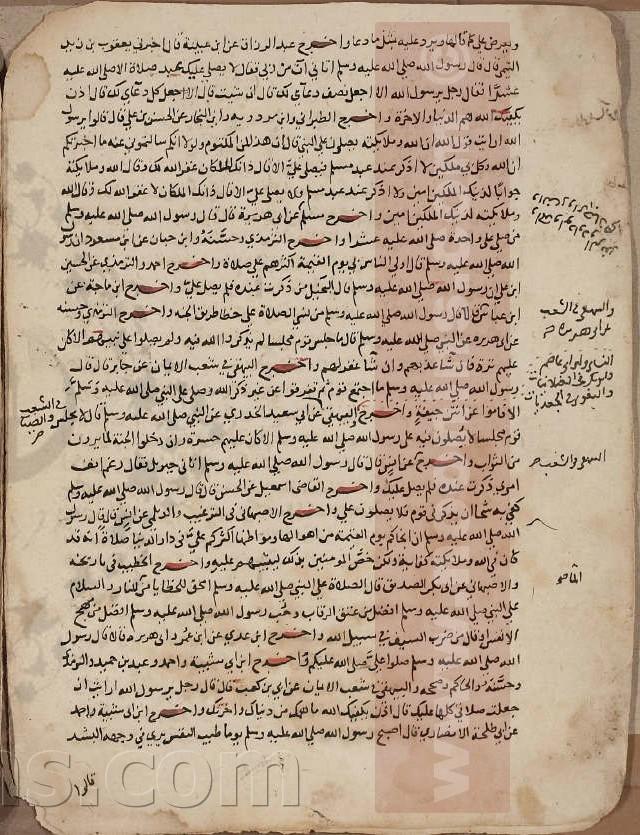 ويعرض على كم قالها ويرد عليه مثل ما دعا واخرج عبد الرزاق عن ابن عيينة قال اخبرني يعقوب بن زيد
التيمي قال قال رسول الله صلى الله عليه وسلم اتاني آت من ربي فقال لا يصلي عليك عبد صلاة الا صلى الله عليه
عشرا فقال رجل يا رسول الله الا اجعل نصف دعاءي لك قال ان شيت قال الا اجعل كل دعاءي لك قال اذن
يكفيك الله هم الدنيا والاخرة واخرج الطبراني وابن مردويه وابن النجار عن الحسن بن علي قال قالوا يا رسول
الله ارايت قول الله ان الله وملايكته يصلون على النبي قال ان هذا لمن المكتوم ولولا انكم سالتموني عنه ما اخبرتكم
ان الله وكل بي ملكين لا اذكر عند عبد مسلم فيصلي علي الا قال ذانك الملكان غفر الله لك وقال الله وملايكته
جوابا لذينك الملكين امين ولا اذكر عند عبد مسلم ولا يصلي علي الا قال ذانك الملكان لا غفر الله لك وقال الله
وملايكته لذينك الملكين امين واخرج مسلم عن ابي هريرة قال قال رسول الله صلى الله عليه وسلم
من صلى علي واحدة صلى الله عليه عشرا واخرج الترمذي وحسنه وابن حبان عن ابن مسعود ان رسول
الله صلى الله عليه وسلم قال اولى الناس بي يوم القيمة اكثرهم علي صلاة واخرج احمد والترمذي عن الحسين
ابن علي ان رسول الله صلى الله عليه وسلم قال البخيل من ذكرت عنده فلم يصل علي واخرج ابن ماجة عن
ابن عباس قال قال رسول الله صلى الله عليه وسلم من نسي الصلاة علي خطا طريق الجنة واخرج الترمذي وحسنه
عن ابي هريرة عن النبي صلى الله عليه وسلم قال ما جلس قوم مجلسا لم يذكروا الله فيه ولم يصلوا على نبيهم الا كان
عليهم ترة فان شا عذبهم وان شا غفر لهم واخرج البيهقي في شعب الايمان عن جابر قال قال
رسول الله صلى الله عليه وسلم ما اجتمع قوم ثم تفرقوا عن غير ذكر الله وصلى على النبي صلى الله عليه وسلم
الا قاموا عن انتن جيفة واخرج البيهقي عن ابي سعيد الخدري عن النبي صلى الله عليه وسلم قال لا يجلس
قوم مجلسا لا يصلون فيه على رسول الله صلى الله عليه وسلم الا كان عليهم حسرة وان دخلوا الجنة لما يرون
من الثواب واخرج عن انس قال قال رسول الله صلى الله عليه وسلم اتاني جبريل فقال رغم انف
امرئ ذكرت عنده فلم يصل عليك واخرج القاضي اسمعيل عن الحسن قال قال رسول الله صلى الله عليه وسلم
كفى به شحا ان يذكرني قوم فلا يصلون علي واخرج الاصبهاني في الترغيب والديلمي عن انس قال قال رسول
الله صلى الله عليه وسلم ان انجاكم يوم القيمة من اهوالها ومواطنها اكثركم علي في دار الدنيا صلاة انه قد
كان في الله وملايكته كفاية ولكن خص المومنين بذلك ليثيبهم عليه واخرج الخطيب في تاريخه
والاصبهاني عن ابي بكر الصديق قال الصلاة على النبي صلى الله عليه وسلم امحق للخطايا من الماء للنار والسلام
على النبي صلى الله عليه وسلم افضل من عتق الرقاب وحب رسول الله صلى الله عليه وسلم افضل من مهج
الانفس او قال من ضرب السيف في سبيل الله واخرج ابن عدي عن ابن عمر وابي هريرة قالا قال رسول
الله صلى الله عليه وسلم صلوا علي صلى الله عليكم واخرج ابن ابي شيبة واحمد وعبد بن حميد والترمذي
وحسنه والحاكم وصححه والبيهقي في شعب الايمان عن ابي بن كعب قال قال رجل يا رسول الله ارايت ان
جعلت صلاتي كلها عليك قال اذن يكفيك الله ما اهمك من دنياك واخرتك واخرج ابن ابي شيبة واحمد
عن ابي طلحة الانصاري قال اصبح رسول الله صلى الله عليه وسلم يوما طيب النفس يرى في وجهه البشر
قالوا
والبيهقي في الشعب
عن ابي هريرة
البيهقي في الشعب
ns.com